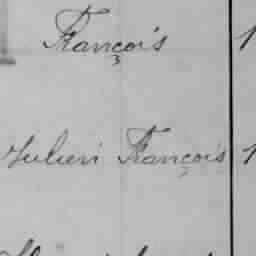 François
Julien François